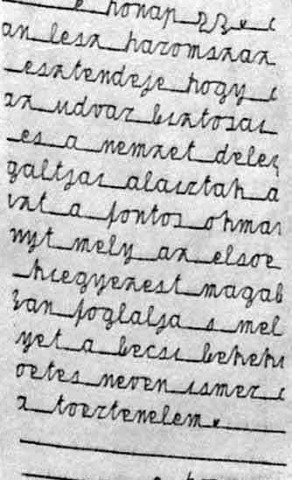 e honap 23 x
an lesz haromszaz
esztendeje hogy
az udvar biztosai
es a nemzet dele
galtjai alairtak a
zt a fontos okma
nyt mely az elsoe
kiegyezest magab
an foglalja s mel
yet a becsi bekek
oetes neven ismer
a toertenelem x